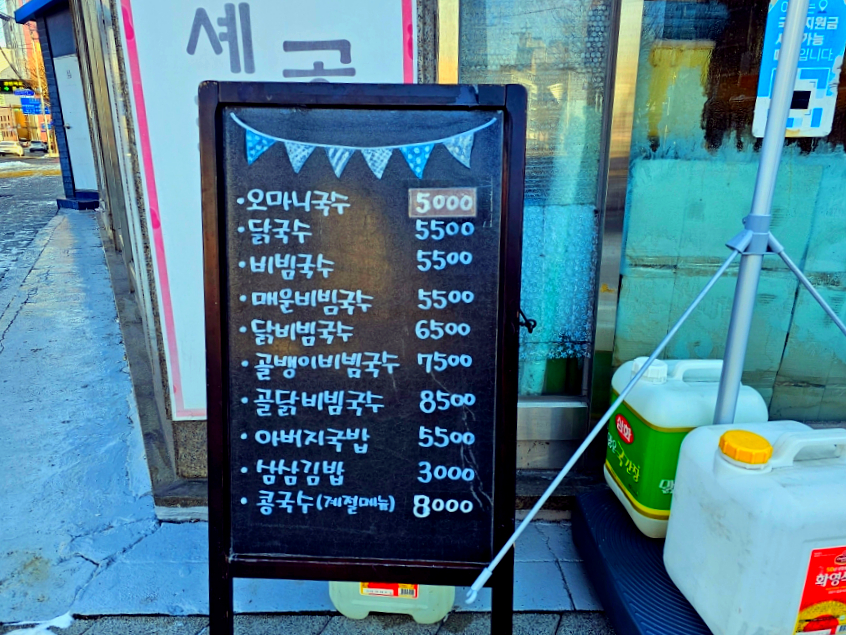 세 공
·오마니국수 5000
·닭국수 5500
·비빔국수 5500
·매운비빔국수 5500
·닭비빔국수 6500
·골뱅이비빔국수 7500
·골닭비빔국수 8500
·아버지국밥 5500
·삼삼김밥 3000
·콩국수(계절메뉴) 8000